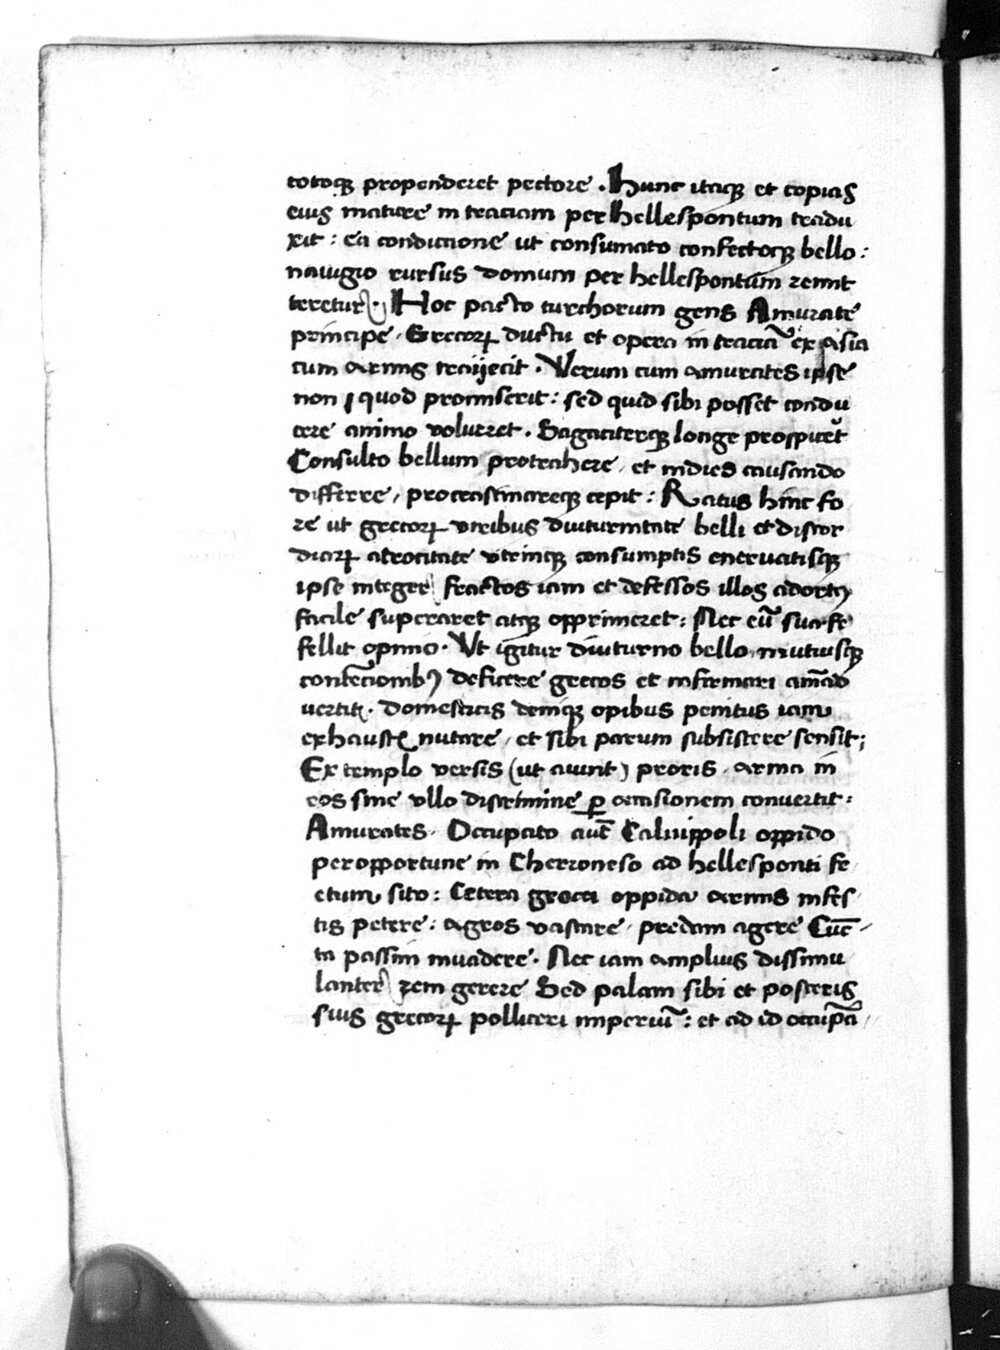 totoqꝫ propenderet pectore . Hunc itaqꝫ et copias
eius mature in traciam per Hellespontum tradu
xit : ea condicione ut consumato confectoqꝫ bello :
nauigio rursus domum per hellespontum remit
teretur . Hoc pacto turchorum gens Amurate
principe . Grecoꝝ ductu et opera in traciā ex asia
cum armis traijecit . Verum cum amurates ipse
non quod promiserit : sed quid sibi posset condu
cere animo volueret . Sagaciterqꝫ longe prospiceret
Consulto bellum protrahere / et indies causando
differre / procrastinareqꝫ cepit : Ratus hinc fo
re ut grecoꝝ viribus diuturnitate belli et discor
diaꝝ atrocitate vtrinqꝫ consumptis eneruatisqꝫ
ipse integer fractos iam et defessos illos adortꝰ
facile superaret atqꝫ opprimeret : Nec eū sua fe
fellit opinio . Vt igitur diuturno bello mutuisqꝫ
confectionibꝰ deficere grecos et infirmari aīaduertit
. Domesticis deniqꝫ opibus penitus iam
exhaustꝭ nutare / et sibi parum subsistere sensit ;
Extemplo versis ( ut aiunt ) proris . arma in
eos sine vllo discrimine ꝑ occasionem conuertit :
Amurates . Occupato aūt Calliuppoli oppido
peropportune in Cherroneso ad hellesponti fe
ctum sito : Cetera greca oppida armis infes
tis petere : agros vastare / predam agere Cūc
ta passim inuadere . Nec iam amplius dissimu
lanter rem gerere Sed palam sibi et posteris
suis grecoꝝ polliceri imperiū : et ad id occupā